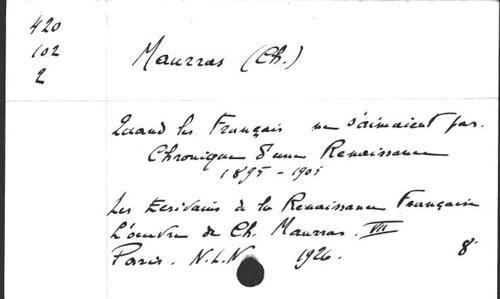 420
102
2
Maurras (Ch.)
Quand les Français ne s'aimaient pas.
Chronique d'une Renaissance
1895-1905
Les Ecrivains de la Renaissance Française
L'oeuvre de Ch. Maurras. VII
Paris. N.L.N 1926. 8°